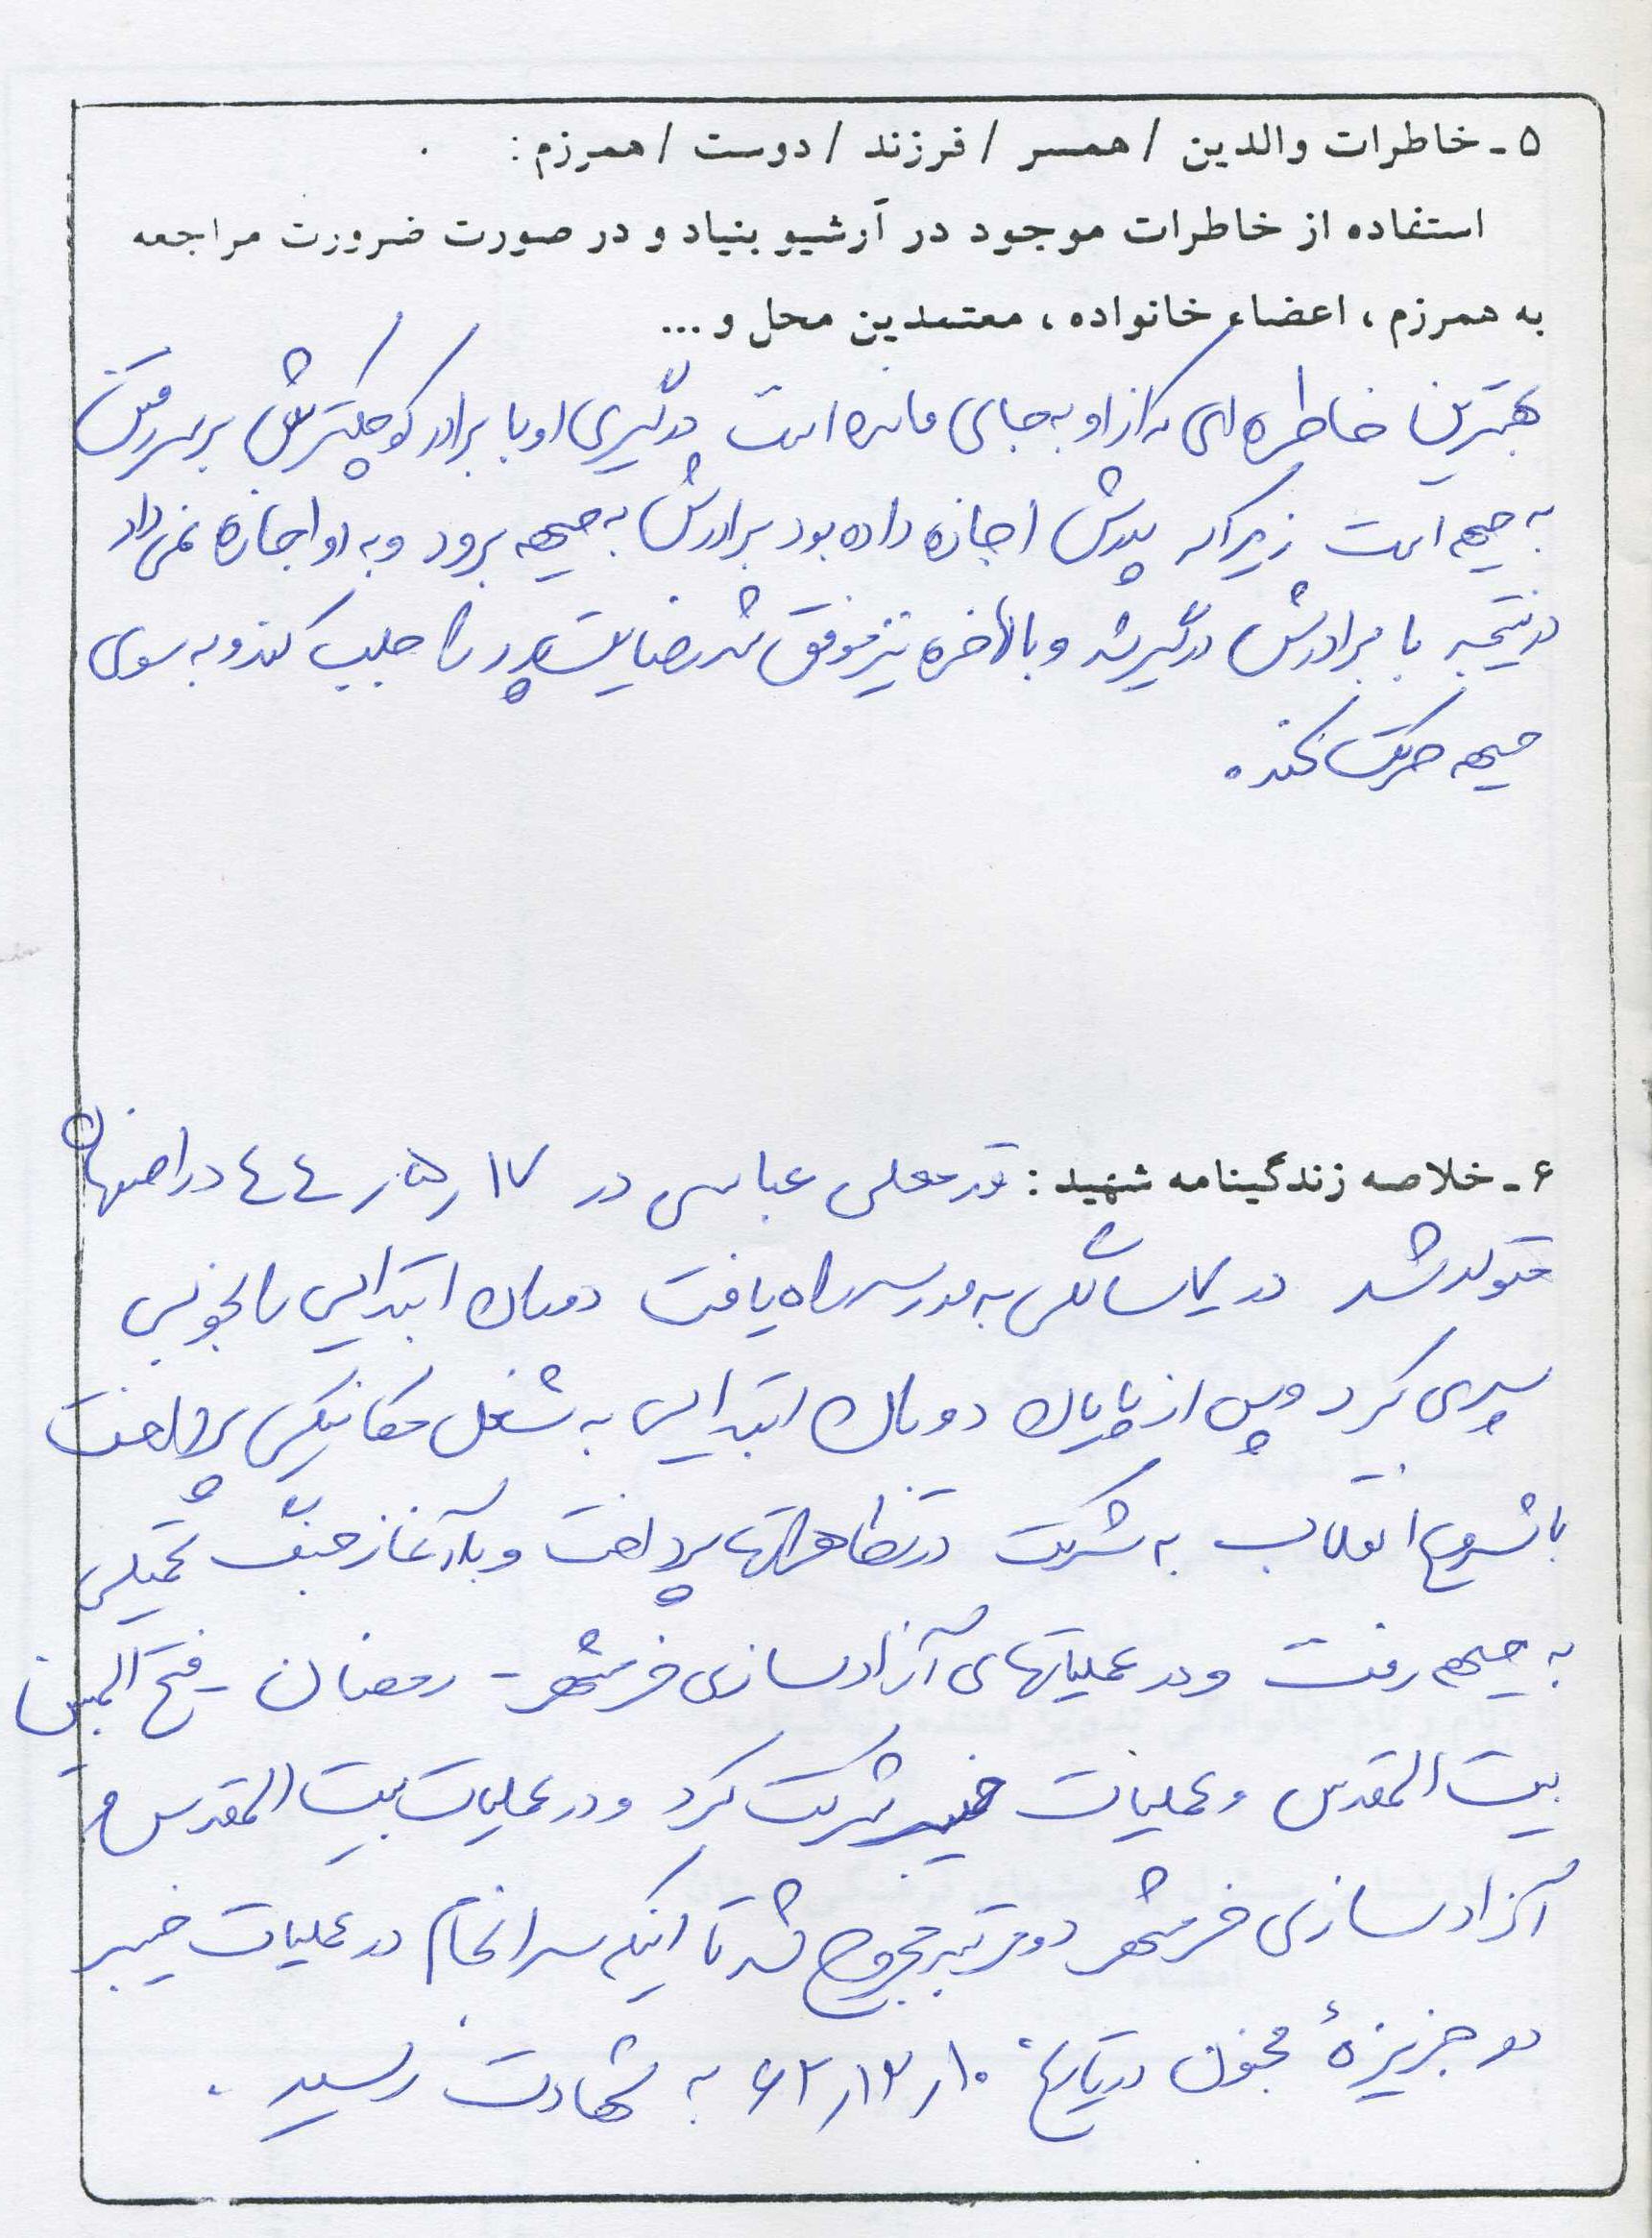 ۵ - خاطرات والدین / همسر / فرزند / دوست / همرزم :
استفاده از خاطرات موجود در آرشیو بنیاد و در صورت ضرورت مراجعه
به همرزم ، اعضاء خانواده ، معتمدین محل و ...
بهترین خاطره ای که از او به جای مانده است درگیری او با برادر کوچکترش بر سر رفتن
به جبهه است زیرا که پدرش اجازه داده بود برادرش به جبهه برود و به او اجازه نمی داد
در نتیجه با برادرش درگیر شد و بالاخره نیز موفق شد رضایت پدر را جلب کند و به سوی
جبهه حرکت کند .
۶ - خلاصه زندگینامه شهید : قدمعلی عباسی در ۱۷ ر ۵ ر ۴۴ در اصفهان
متولد شد در ۷ سالگی به مدرسه راه یافت دوران ابتدایی را بخوبی
سپری کرد و پس از پایان دوران ابتدایی به شغل مکانیکی پرداخت
با شروع انقلاب به شرکت در تظاهراتها پرداخت و با آغاز جنگ تحمیلی
به جبهه رفت و در عملیاتهای آزادسازی خرمشهر - رمضان - فتح المبین
بیت المقدس و عملیات خیبر شرکت کرد و در عملیات بیت المقدس و
آزادسازی خرمشهر دو مرتبه مجروح شد تا اینکه سرانجام در عملیات خیبر
در جزیرهٔ مجنون در تاریخ ۱۰ ر ۱۲ ر ۶۲ به شهادت رسید .